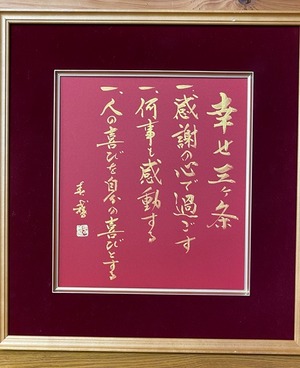 幸せ三ヶ条
一、感謝の心で過ごす
一、何事も感動する
一、人の喜びを自分の喜びとする